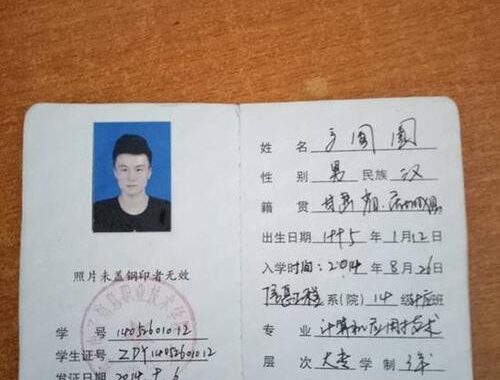 照片未盖钢印者无效
学号 1405260112
学生证号 ZDY1405260112
发证日期 2014 9 6
姓名
性别 男 民族 汉
籍贯 甘肃
出生日期 1995 年 1 月 12 日
入学时间:2014 年 8 月 26 日
信息工程 系(院) 14 级 计应 班
专业 计算机应用技术
层次 大专 学制 3年